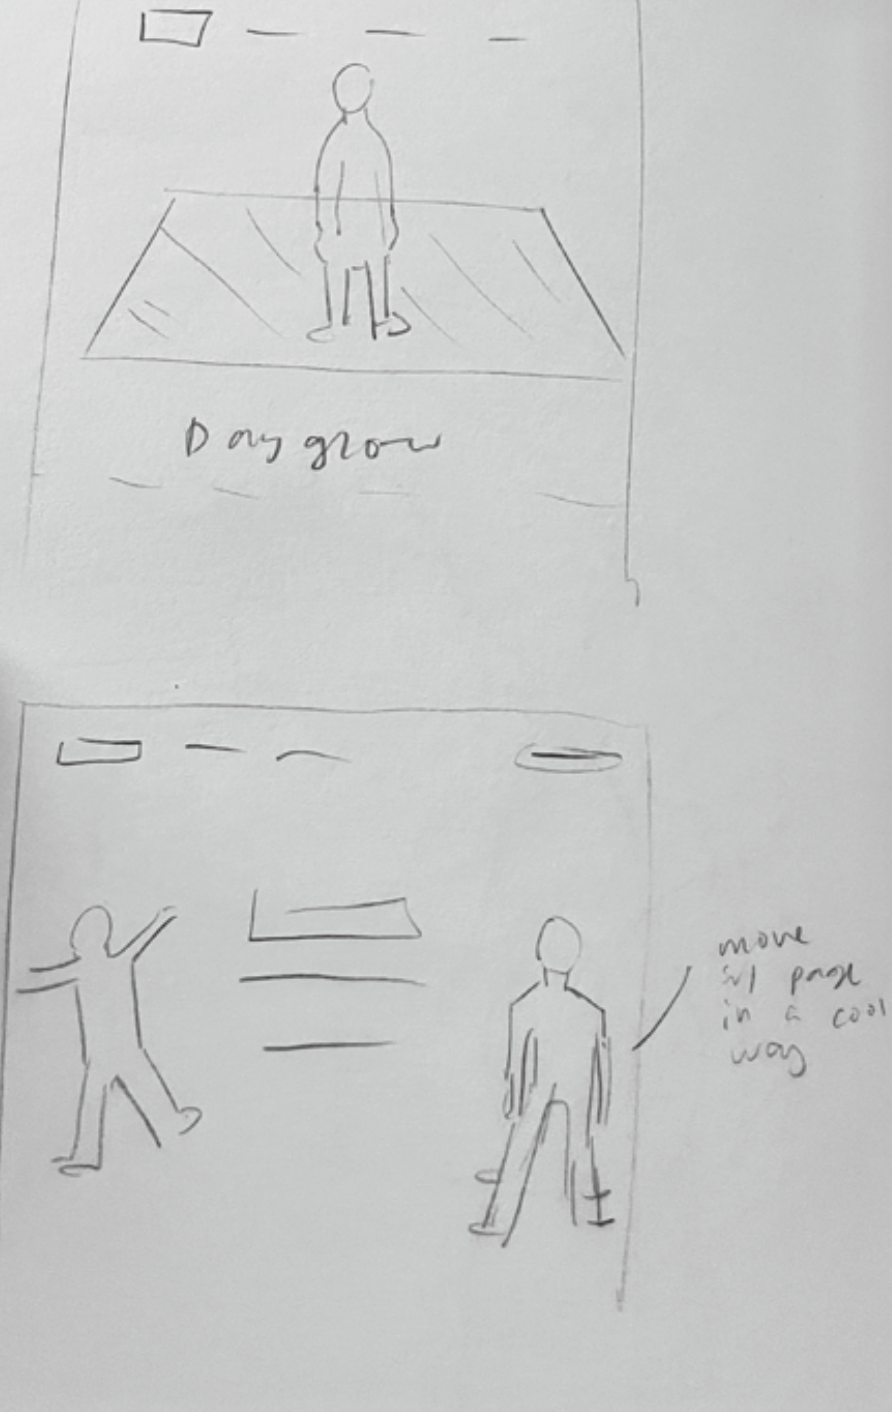 Dayglow
move
w/ page
in a cool
way